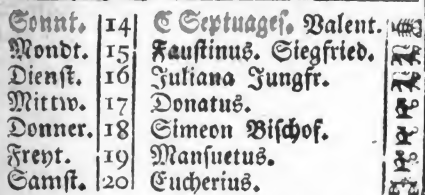 Sonnt. 14 C Septuages. Valent.
Mondt. 15 Faustinus. Siegfried.
Dienst. 16 Juliana Jungfr.
Mittw. 17 Donatus.
Donner. 18 Simeon Bischof.
Freyt. 19 Mansuetus.
Samst. 20 Eucherius.